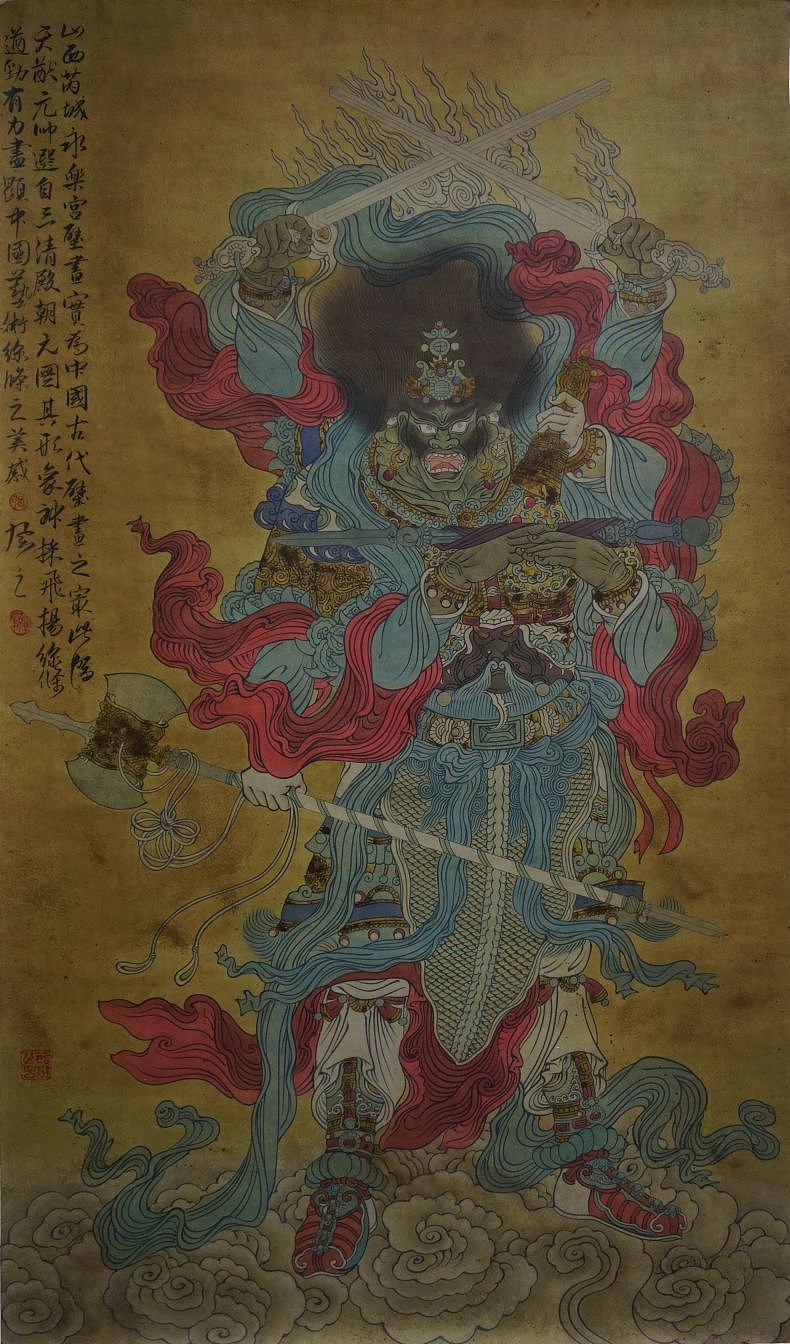 山西芮城永樂宮壁畫實為中國古代壁畫之最此幅
天猷元帅選自三清殿朝元圖其形象神採飛揚線條
遒勁有力盡顯中國藝術線條之美感